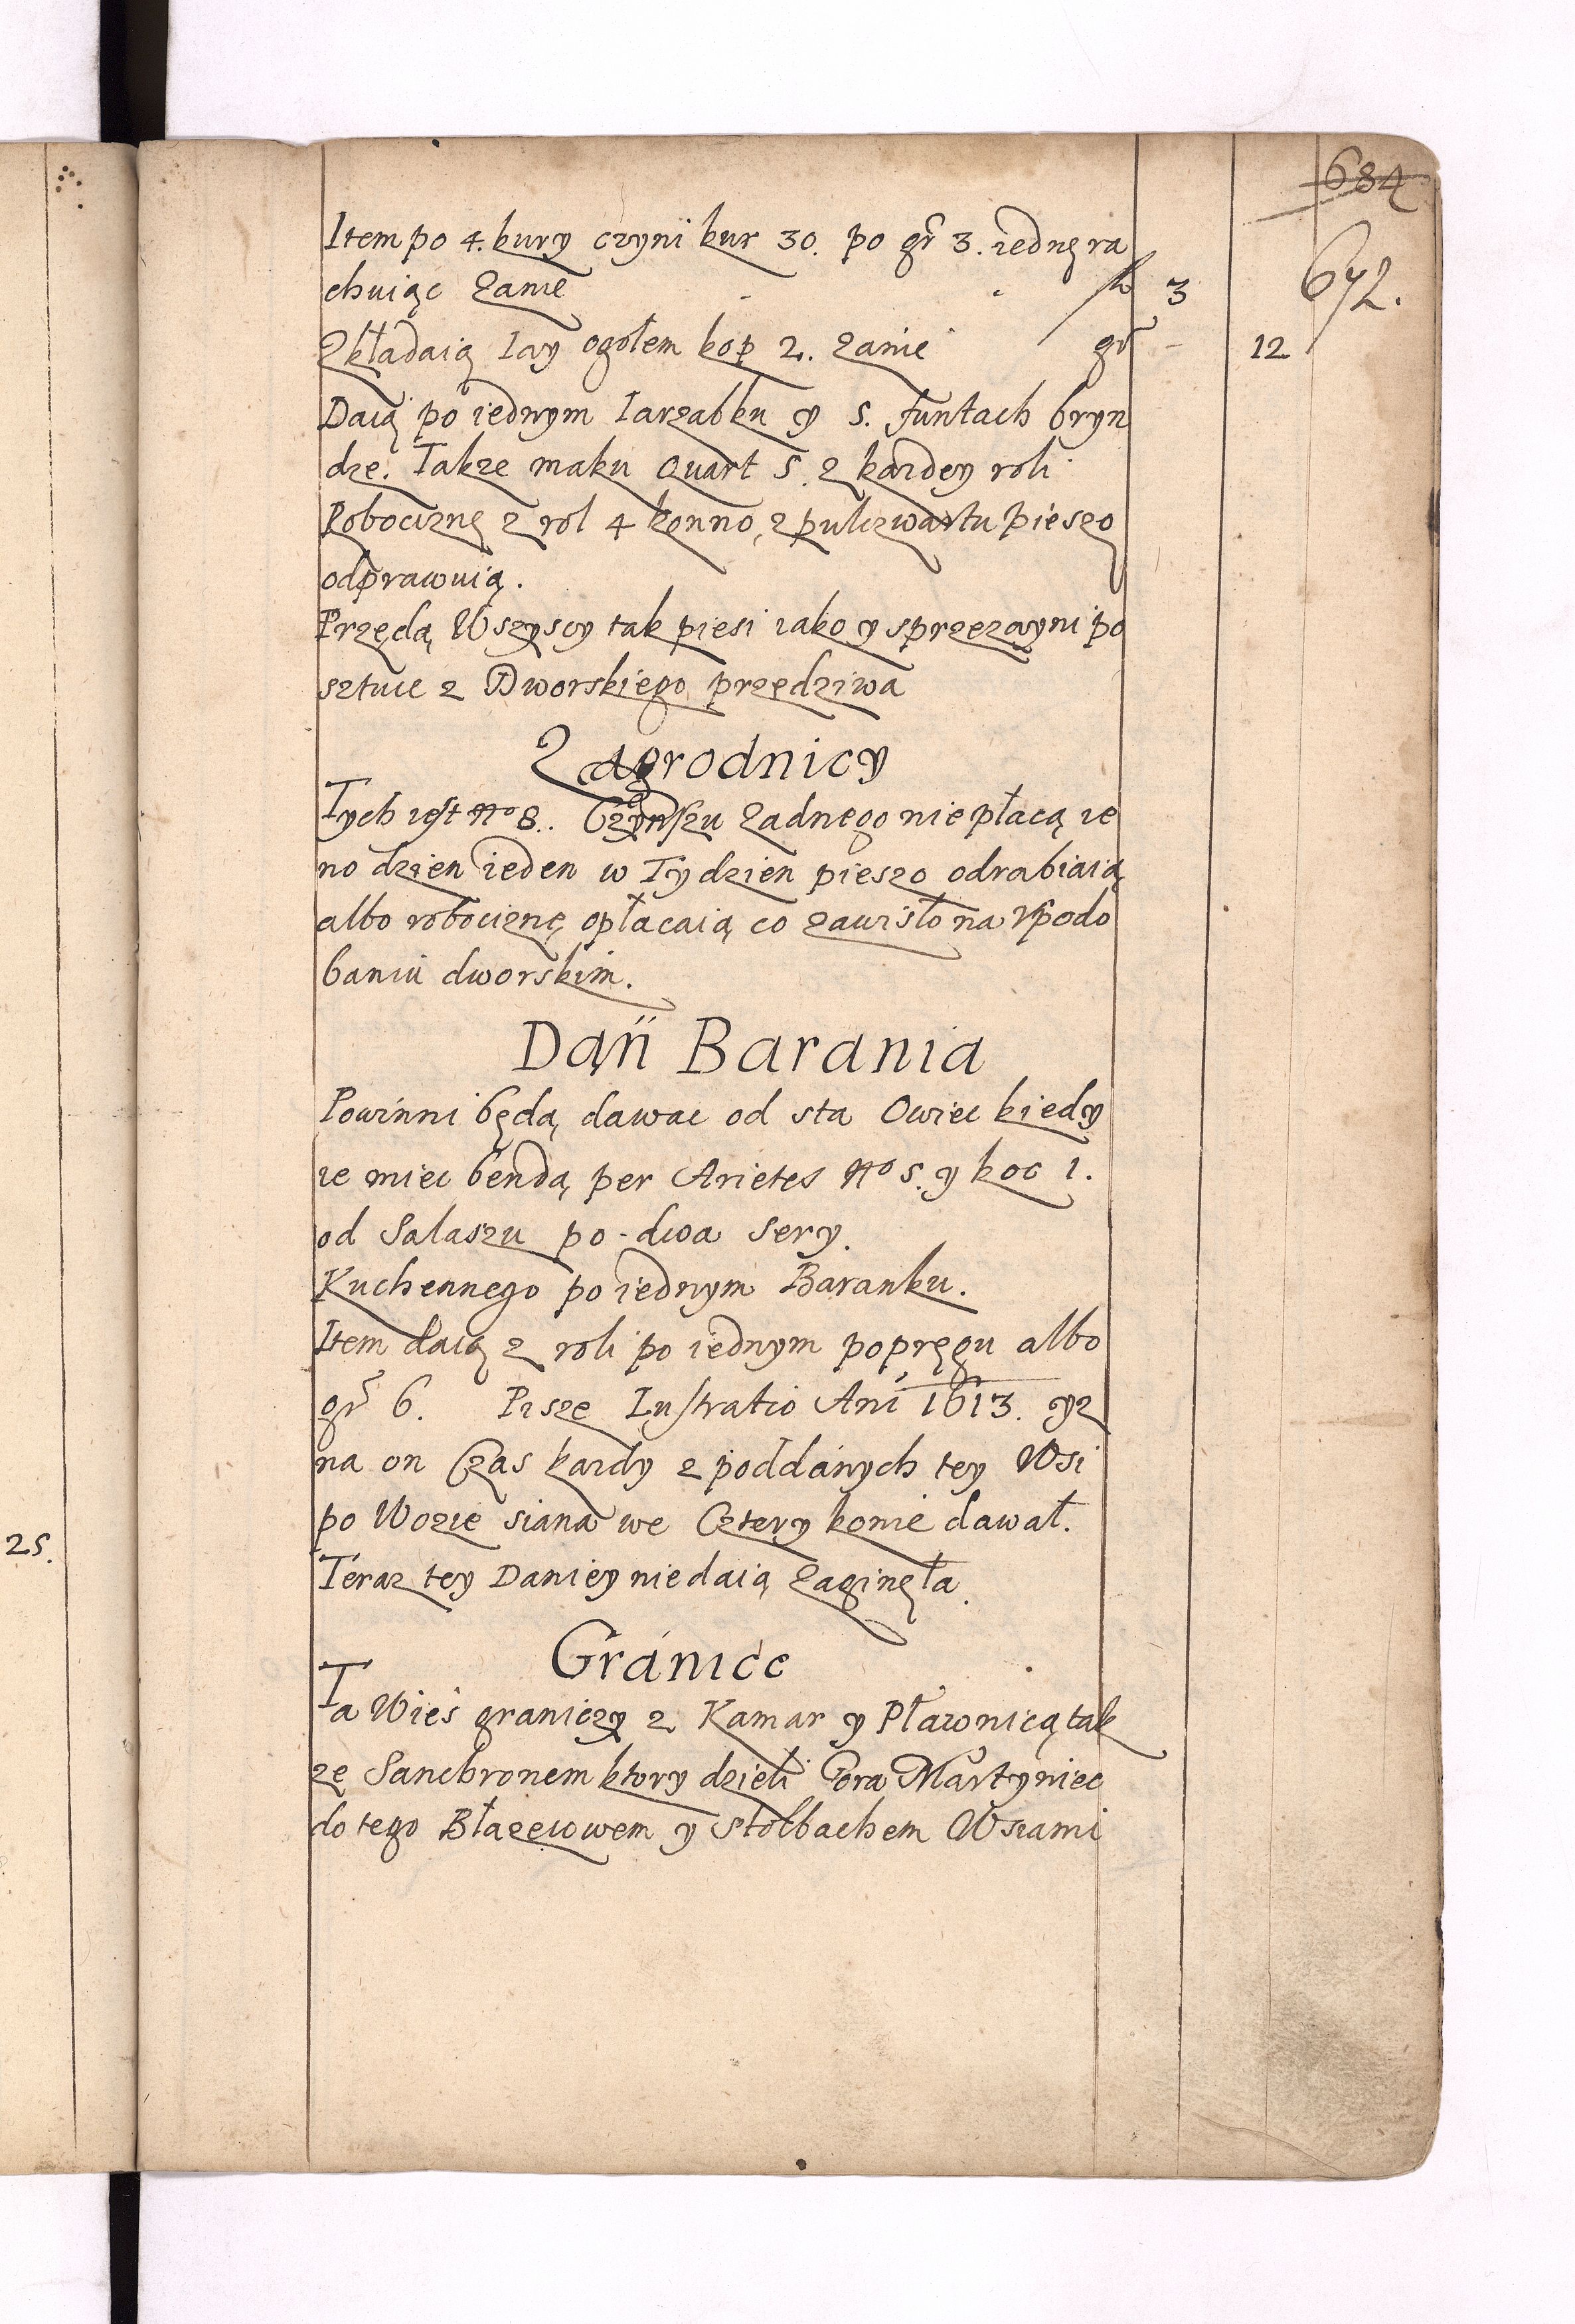 684
672.
Item po 4. kury czyni kur 30. po gr 3. iednę ra
chuiąc zanie fl 3
Zkładaią Iay ogołem kop 2. zanie gr - 12
Daią po iednym Iarząbku y 5. funtach bryn
dze. Takze maku Quart 5. z kazdey roli
Robociznę z rol 4 konno, z pulczwartu pieszo
odprawuią.
Przędą Wszyscy tak piesi iako y sprzęzayni po
sztuce z Dworskiego przędziwa
Zagrodnicy
Tych iest No 8. Czynszu zadnego nie płacą ie
no dzien ieden w Tydzien pieszo odrabiaią
albo robociznę opłacaią co zawisło na Vpodo
baniu dworskim.
Dań Barania
Powinni będą dawac od sta Owiec kiedy
ie miec bendą per Arietes No 5. y koc 1.
od Salaszu po dwa sery.
Kuchennego po iednym Baranku.
Item daią z roli po iednym popręgu albo
gr 6. Pisze Lustratio Ani 1613. yz
na on Czas kazdy z poddanych tey Wsi
po Wozie siana we Cztery konie dawał.
Teraz tey Daniey nie daią zaginęła.
Granice
Ta Wieś graniczy z Kamar y Pławnicą tak
ze Sanebronem ktory dzieli Gora Martyniec
do tego Błazewowem y Stołbachem Wsiami
25.